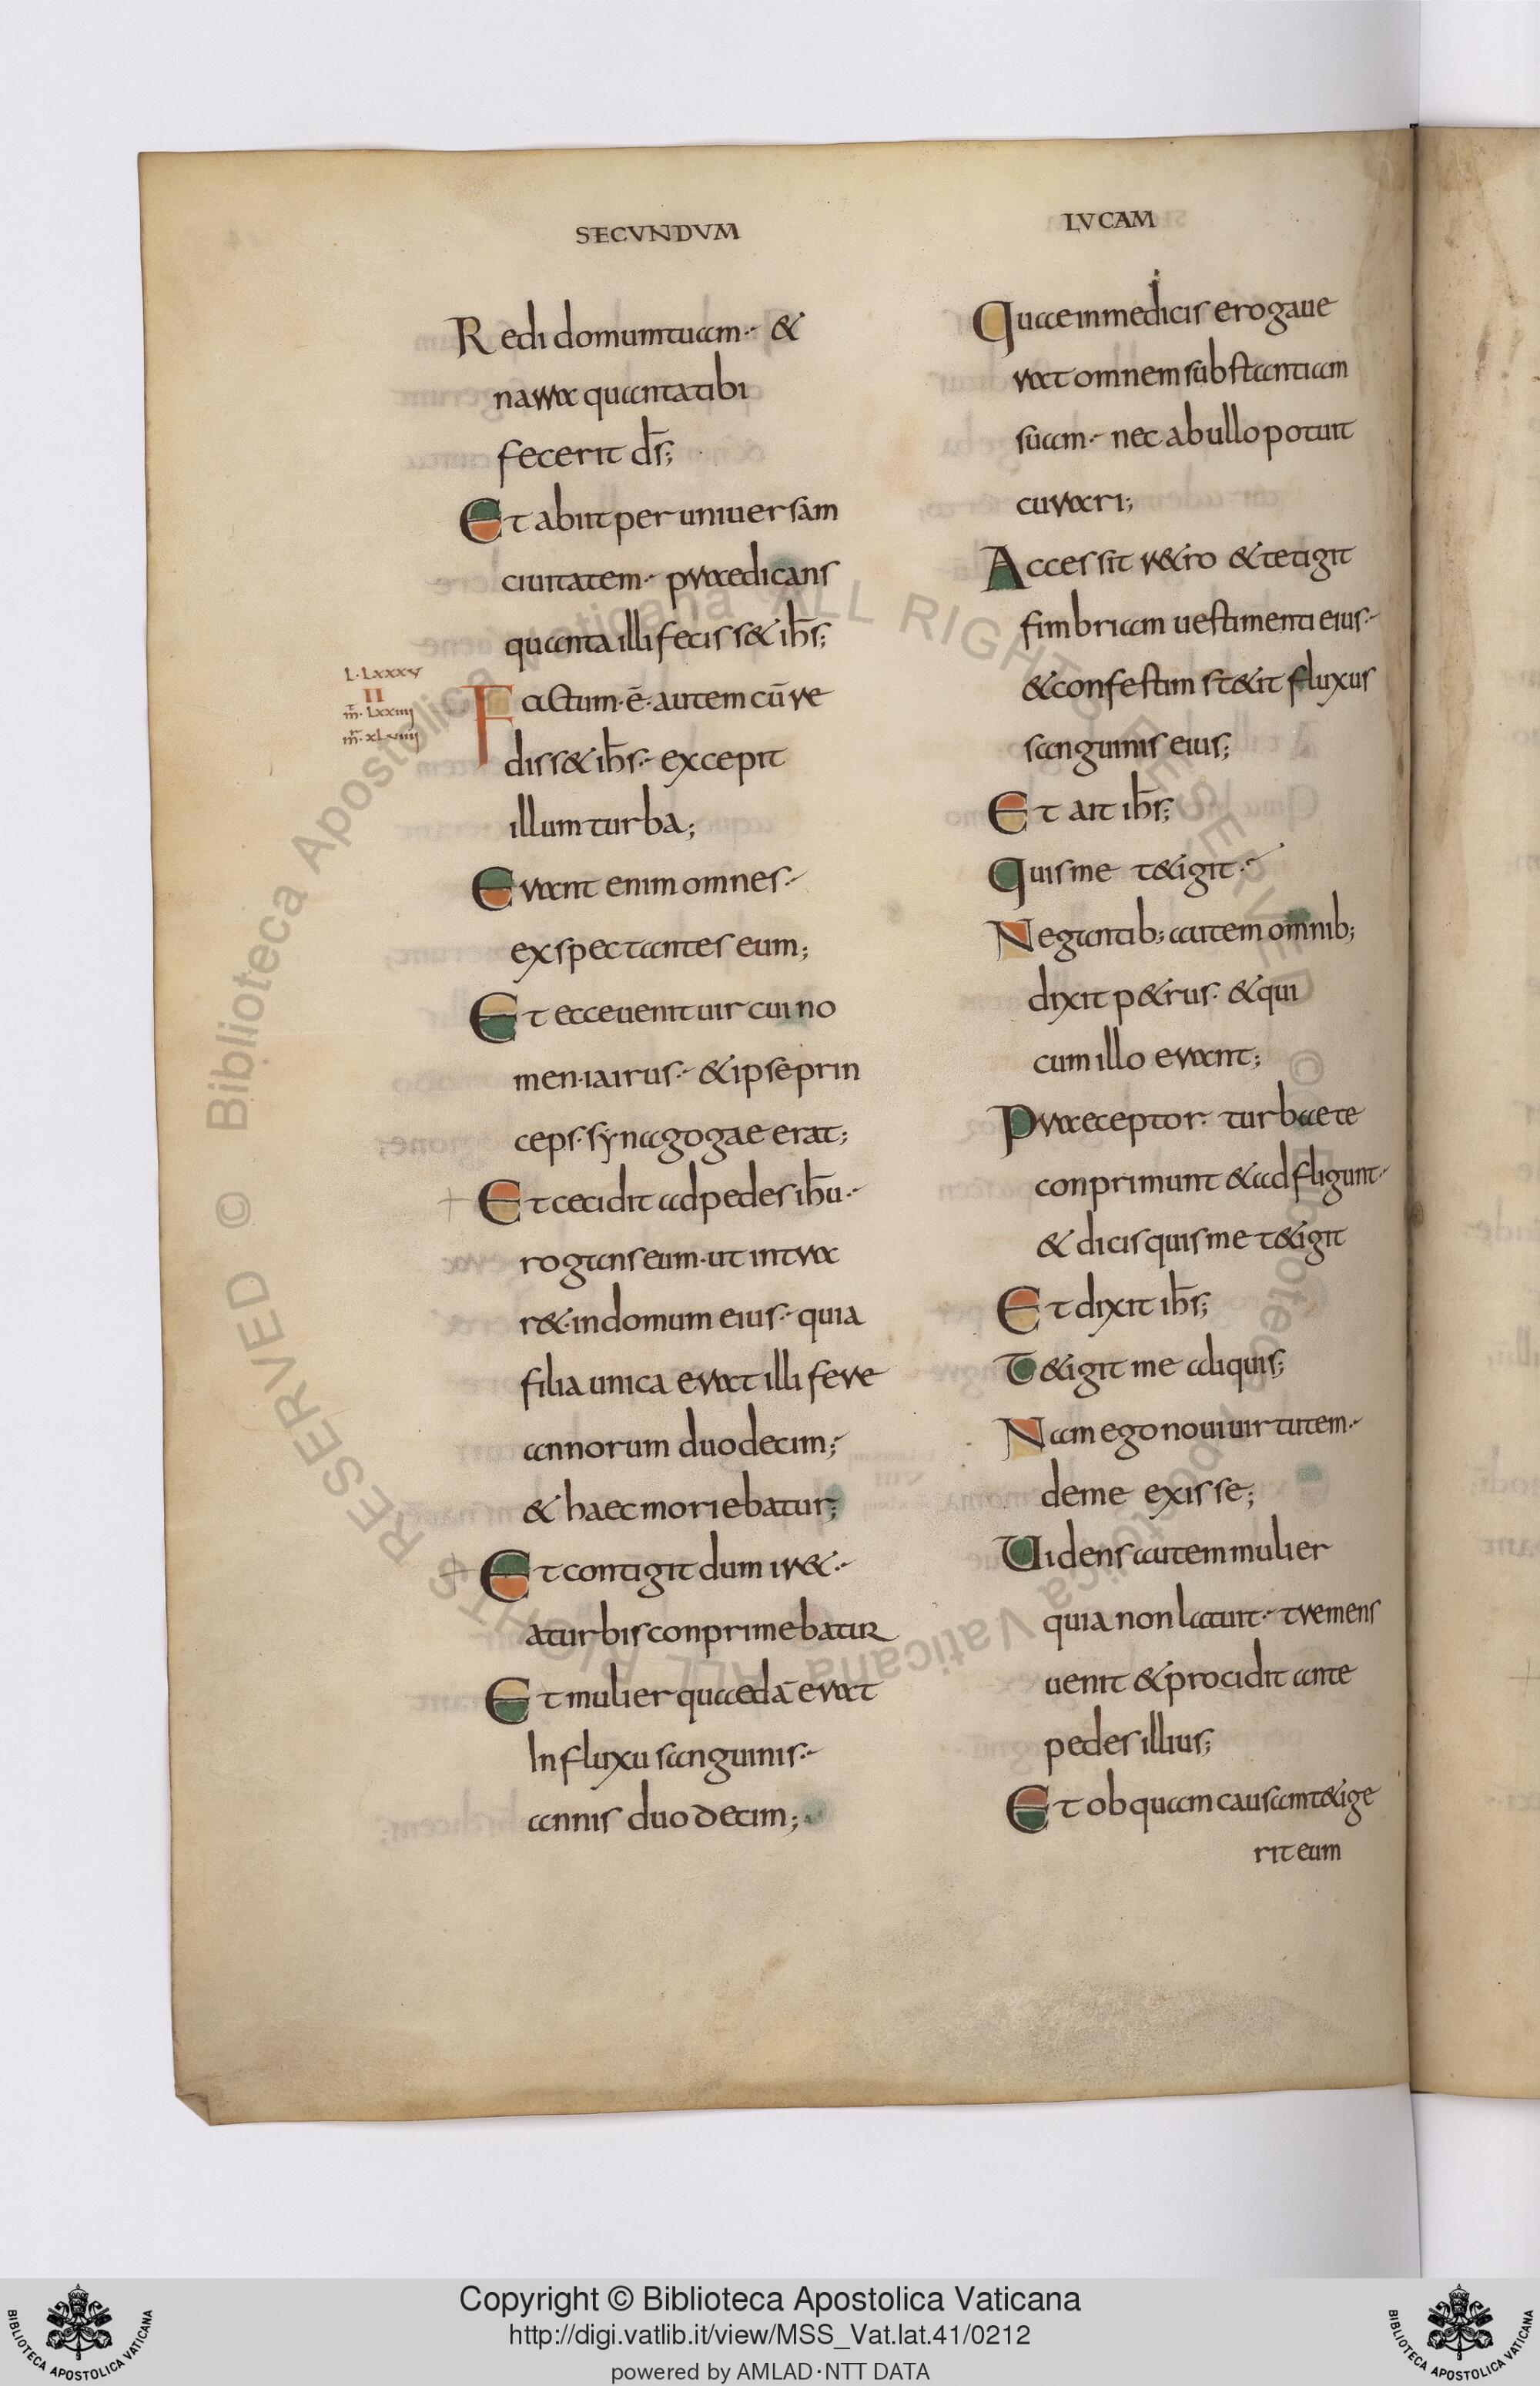 SECVNDVM
Redi domum tuam·- &
narra quanta tibi
fecerit d̄s;
Et abiit per uniuersam
ciuitatem·- praedicans
quanta illi feciss& ih̄s;
L·LXXXV
II
m̄·LXXIIII
m̄·XLVIIII
Factum·ē·autem cū re
diss& ih̄s·- excepit
illum turba;
Erant enim omnes·-
exspectantes eum;
Et ecce uenit uir cui no
men·iairus·- & ipse prin
ceps·synagogae erat;
Et cecidit ad pedes ih̄u·-
rogans eum·ut intra
r&·in domum eius·- quia
filia unica erat illi fere
annorum duodecim;-
& haec moriebatur;
Et contigit dum ir&·-
a turbis conprimebatur
Et mulier quaedā erat
In fluxu sanguinis·-
annis duodecim;
LVCAM
Quae in medicis erogaue
rat omnem substantiam
suam·- nec ab ullo potuit
curari;
Accessit r&ro & tetigit
fimbriam uestimenti eius·-
& confestim st&it fluxus
sanguinis eius;
Et ait ih̄s;
Quis me t&igit·-
Negantib; autem omnib;
dixit p&rus· & qui
cum illo erant;
Praeceptor· turbae te
conprimunt & adfligunt·-
& dicis quis me t&igit
Et dixit ih̄s;
T&igit me aliquis;
Nam ego noui uirtutem·-
de me exisse;
Uidens autem mulier
quia non latuit·- tremens
uenit & procidit ante
pedes illius;
Et ob quam causam t&ige
rit eum
Copyright © Biblioteca Apostolica Vaticana
http://digi.vatlib.it/view/MSS_Vat.lat.41/0212
powered by AMLAD·NTT DATA